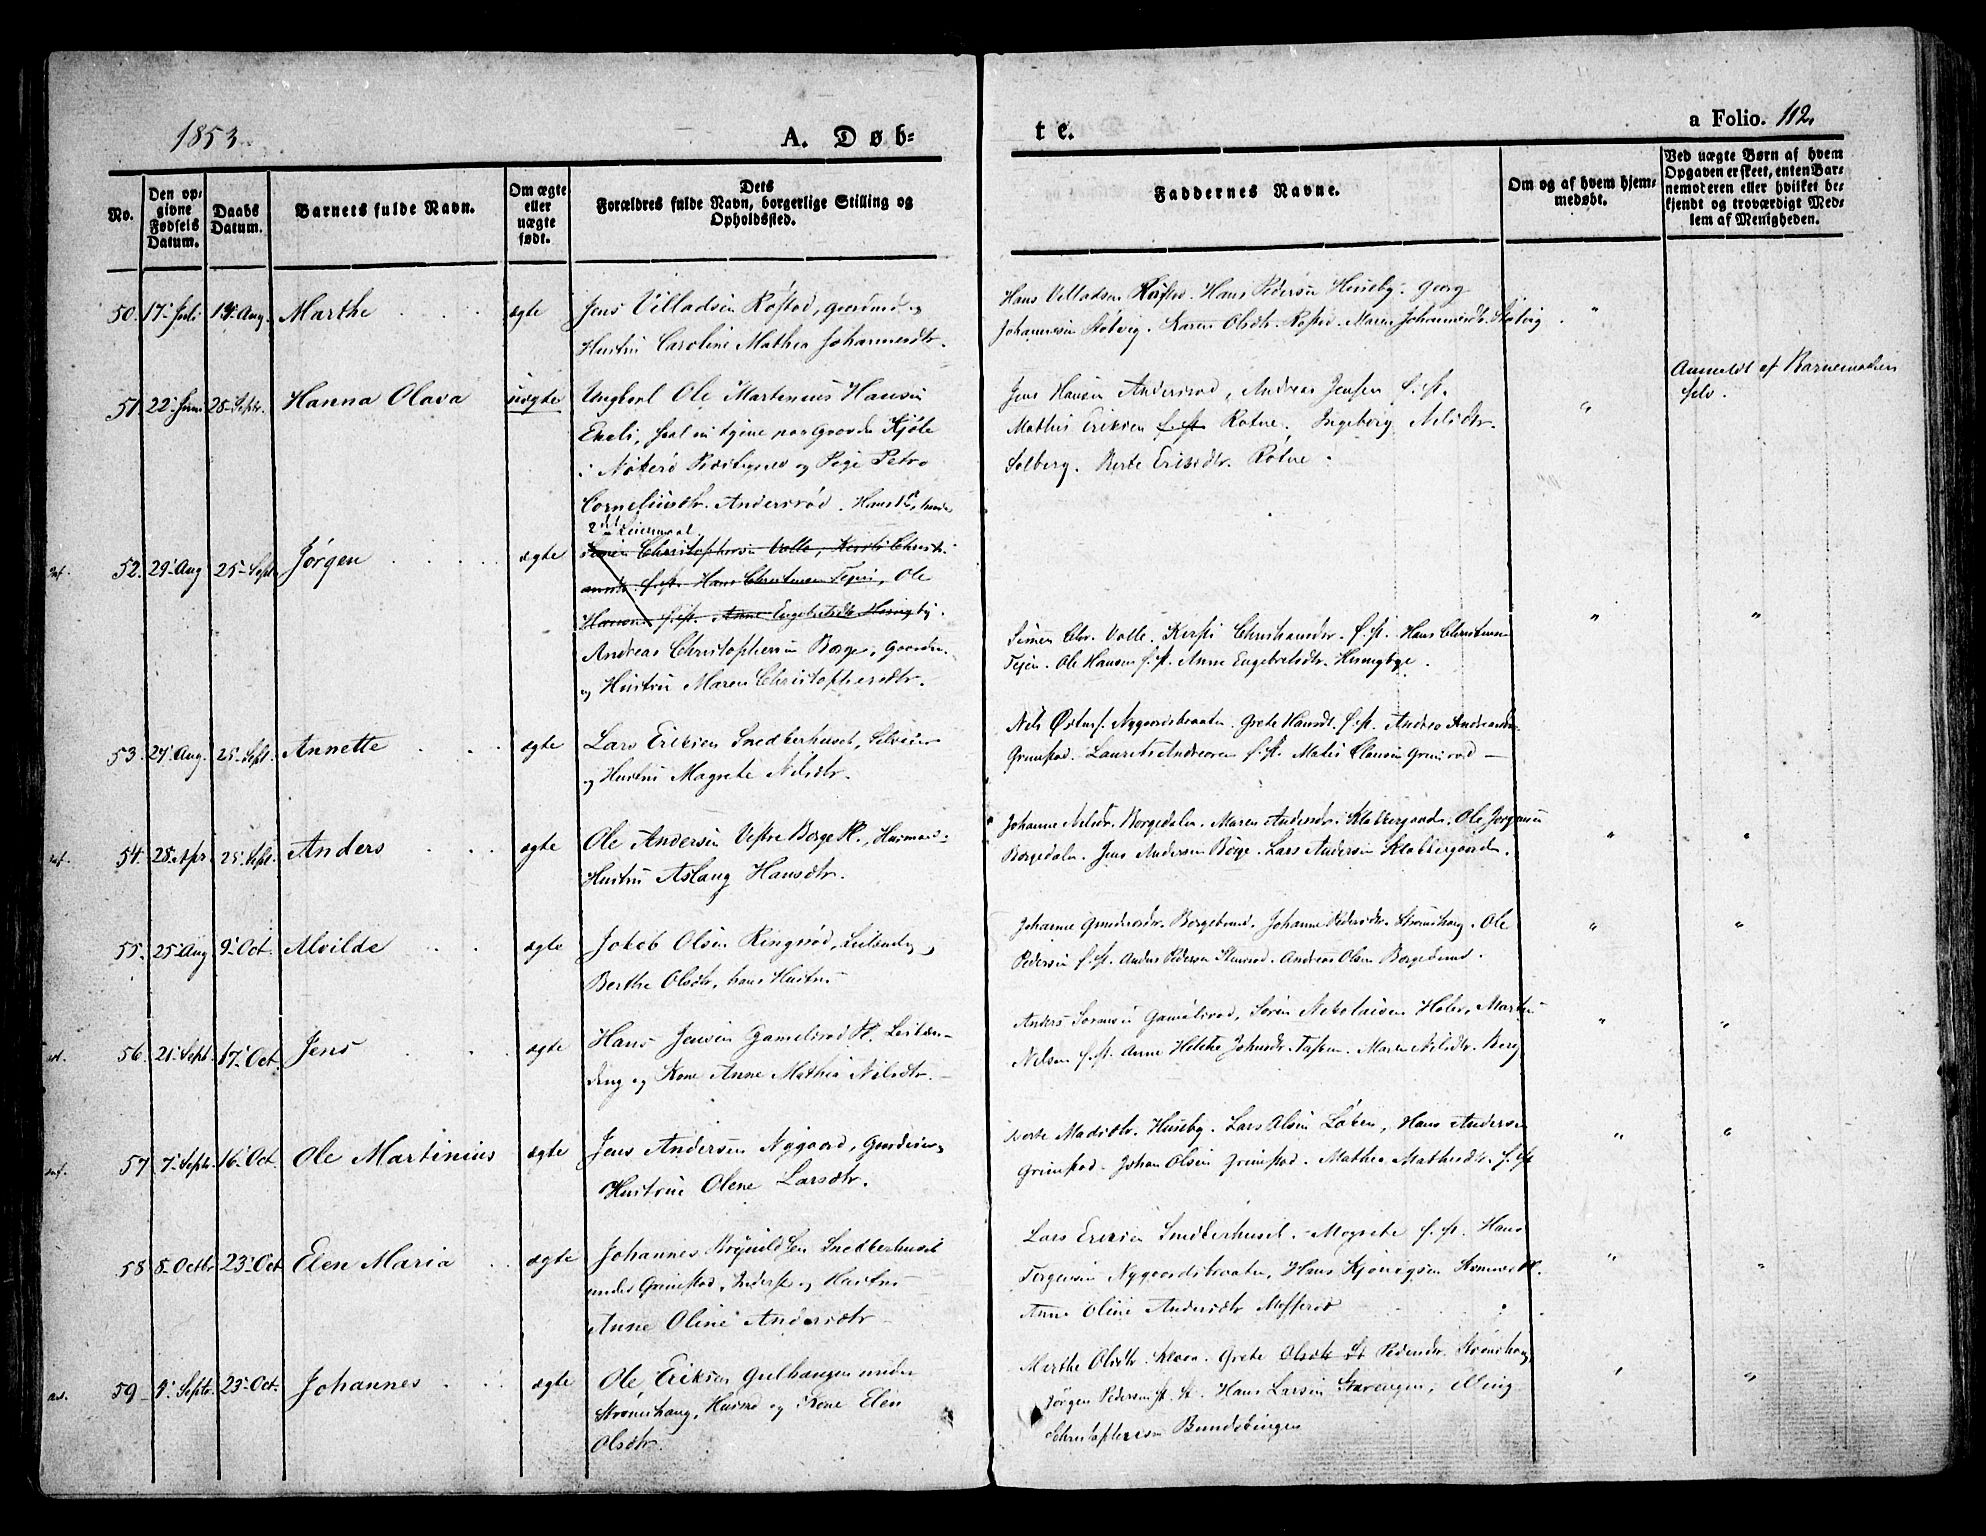 1853.
A. Døb-
te.
a Folio. 112.
No.
Den op-
givne
Fødsels
Datum.
Daabs
Datum.
Barnets fulde Navn.
Om ægte
eller
uægte
født.
Dets
Forældres fulde Navn, borgerlige Stilling og
Opholdssted.
Faddernes Navne.
Om og af hvem hjem-
medøbt.
Ved uægte Børn af hvem
Opgaven er skeet, enten Bar-
nemoderen eller hvilket be-
kjendt og troværdigt Med-
lem af Menigheden.
50. 17 Juli 14 Aug. Marthe ægte
Jens Villadsen Røstad, gaardmd og
Hustru Caroline Mathea Johannesdtr.
Hans Villadsen Røstad. Hans Pedersen Huseby. Georg
Johannesen Støtvig. Karen Olsdtr. Røstad. Maren Johannesdtr. Støtvig.
51. 22 Juni 25 Septr. Hanna Olava uægte
Ungkarl Ole Martinius Hansen
Ekeli, skal nu tjene paa Gaarden Kjøle
i Præstegjeld og Pige Petra
Corneliusdtr. Andersrød. Hans
2det Leiermaal.
Jens Hansen Andersrød, Andreas Jensen f. st.
Mathis Eriksen f. st. Rotne. Ingeborg Nilsdtr.
Solberg. Berte Eriksdtr. Rotne.
Anmeldt af Barnemoderen
selv.
52. 29 Aug 25 Sept. Jørgen ægte
Simen Christophersen Volle, Kersti Christi-
ansdr. f. st. Hans Christensen Tejen, Ole
Hansen f. st. Anne Engebretsdtr. Honingby.
Andreas Christophersen Borge, Gaardm.
og Hustru Maren Christophersdtr.
Simen Chr. Volle. Kersti Christiansdr. f. st. Hans Christensen
Tejen. Ole Hansen f. st. Anne Engebretsdtr. Honingbye.
53. 27 Aug. 25 Sept. Annette ægte
Lars Eriksen Snedkerhuset, Selveier
og Hustru Magrete Nilsdtr.
Nils Nygaardsbraaten. Grete Hansdt. f. st. Andrea
Grimstad. Laurits Andersen f. st. Matis Clausen
54. 28 Apr. 25 Sept. Anders ægte
Ole Andersen Vestre Borge Pl., Husmand-
Hustru Aslaug Hansdtr.
Johanne Nilsdr. Borgedalen. Maren Andersdr. Klokkergaarden. Ole Jørgensen
Borgedalen. Jens Andersen Borge. Lars Andersen Klokkergaarden.
55. 25 Aug 9 Oct. Alvilde ægte
Jakob Olsen Ringsrød, Leilending
Berthe Olsdtr, hans Hustru
Johanne Gundersdr. Borgebund. Johanne Pedersdr. Strømshaug. Ole
Pedersen f. st. Anders Pedersen. Andreas Olsen Borgebund.
56. 21 Sept. 17 Oct. Jens ægte
Hans Jensen Gamelsrød Pl. Leilæn-
ding og Kone Anne Mathia Nilsdtr.
Anders Sørensen Gamelsrød, Søren Nikolaisen Holer, Martin
Nilsen f. st. Anne Helene Johnsdr. Maren Nilsdtr. Berg
57. 7 Septr. 16 Oct. Ole Martinius ægte
Jens Andersen Nygaard, Gaardeier
Hustrue Olene Larsdtr.
Berte Madsdtr. Huseby. Lars Olsen Løken, Hans Andersen
Grimstad. Johan Olsen Grimstad. Mathea Mathisdr. f. st.
58. 8 Octbr 23 Oct Elen Maria ægte
Johannes Brynildsen Snedkerhuset
under Grimstad, Inderst og Hustru
Anne Oline Andersdtr
Lars Eriksen Snedkerhuset. Magrete f. st. Hans
Torgersen Nygaardsbraaten, Hans
Anne Oline Andersdtr
59. 9 Septr. 23 Oct. Johannes ægte
Ole Eriksen under
Strømshaug, Husmd og Kone Elen
Olsdtr.
Marthe Olsdtr. Klova. Grete Olsdtr. St Pedersdr. Strømshaug
Jørgen Pedersen st. st. Hans Larsen
Christophersen